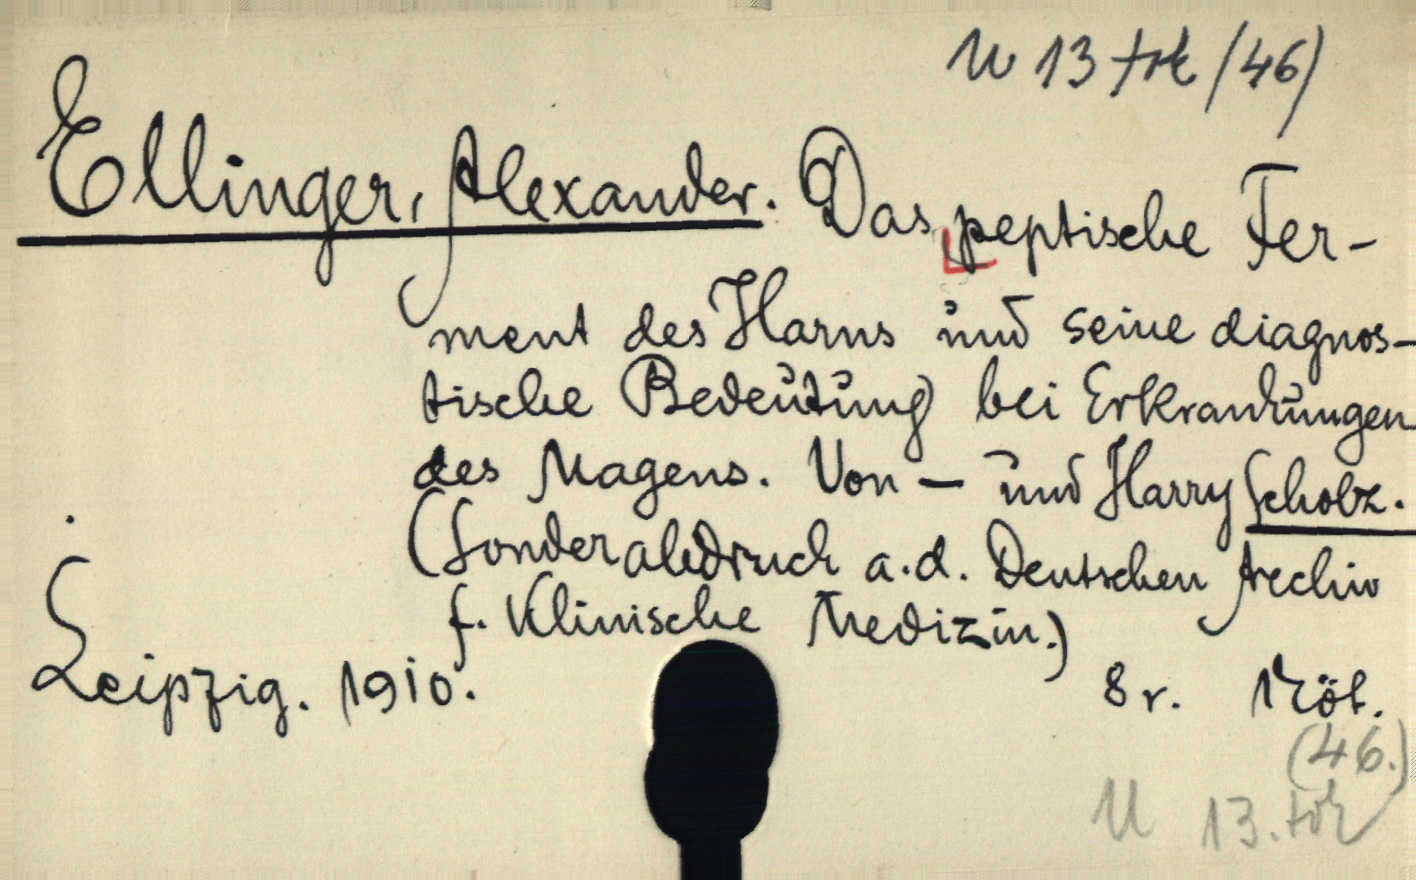 U 13 tok (46)
Ellinger, Alexander. Das peptische Fer-
ment des Harns und seine diagnos-
tische Bedeutung bei Erkrankungen
des Magens. Von — und Harry Scholz.
(Sonderabdruck a. d. Deutschen Archiv
f. Klinische Medizin.)
Leipzig. 1910. 8 r. 1 Köt.
(46.)
U 13. tok